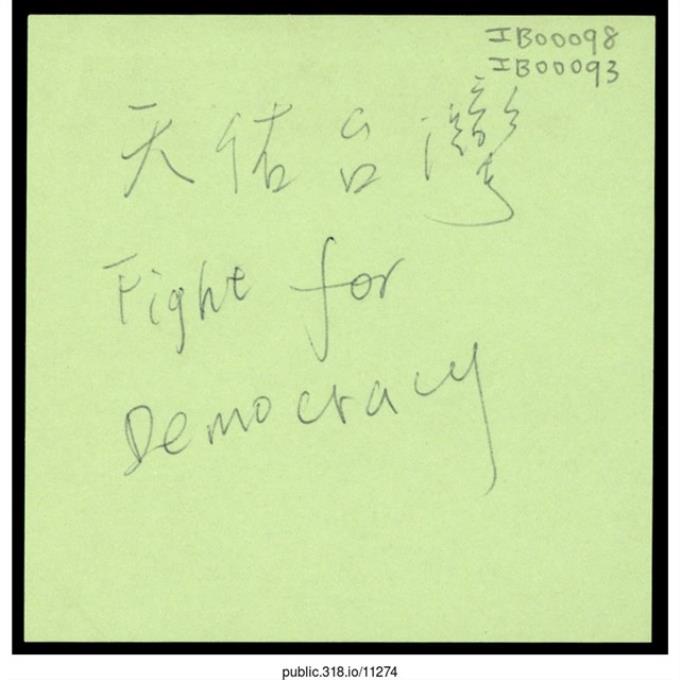 IB00098
IB00093
天佑台灣
Fight for
Democracy
public.318.io/11274